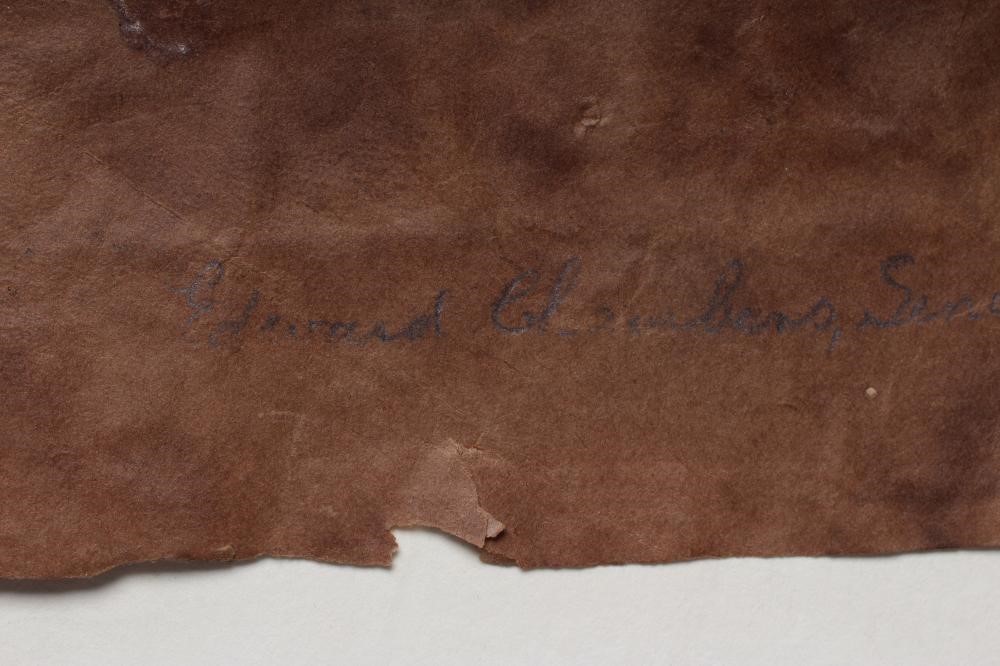 Edward Chambers,